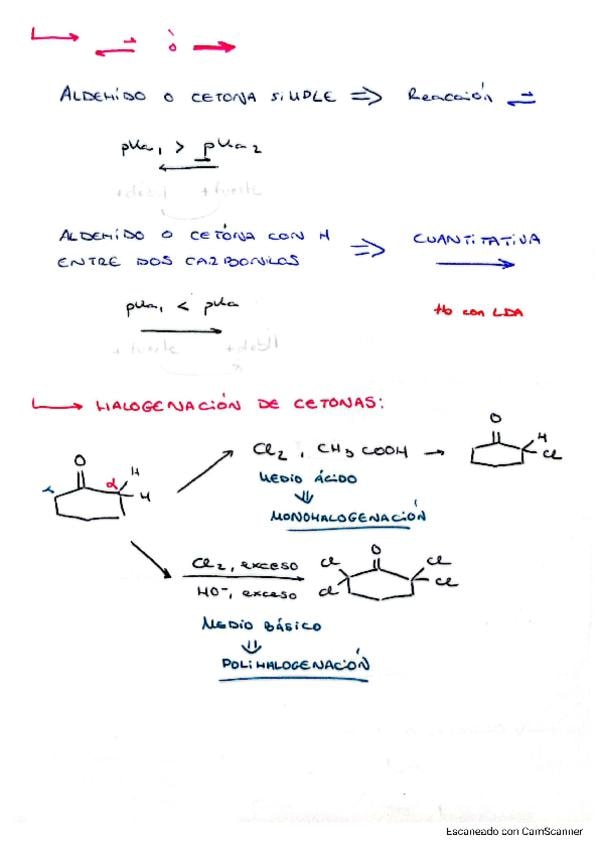 ↳ ⇌ ó →
ALDEHÍDO O CETONA SIMPLE ⇒ Reacción ⇌
pKa₁ > pKa₂
+débil +fuerte
ALDEHÍDO O CETONA CON H
ENTRE DOS CARBONILOS ⇒ CUANTITATIVA →
pKa₁ < pKa
Ho con LDA
+fuerte +débil
↳ HALOGENACIÓN DE CETONAS:
O
Cl₂, CH₃COOH →
O
H
Cl
O
α
H
H
MEDIO ÁCIDO
⇓
MONOHALOGENACIÓN
Cl₂, exceso
HO⁻, exceso
Cl
Cl
O
Cl
Cl
MEDIO BÁSICO
⇓
POLIHALOGENACIÓN
Escaneado con CamScanner